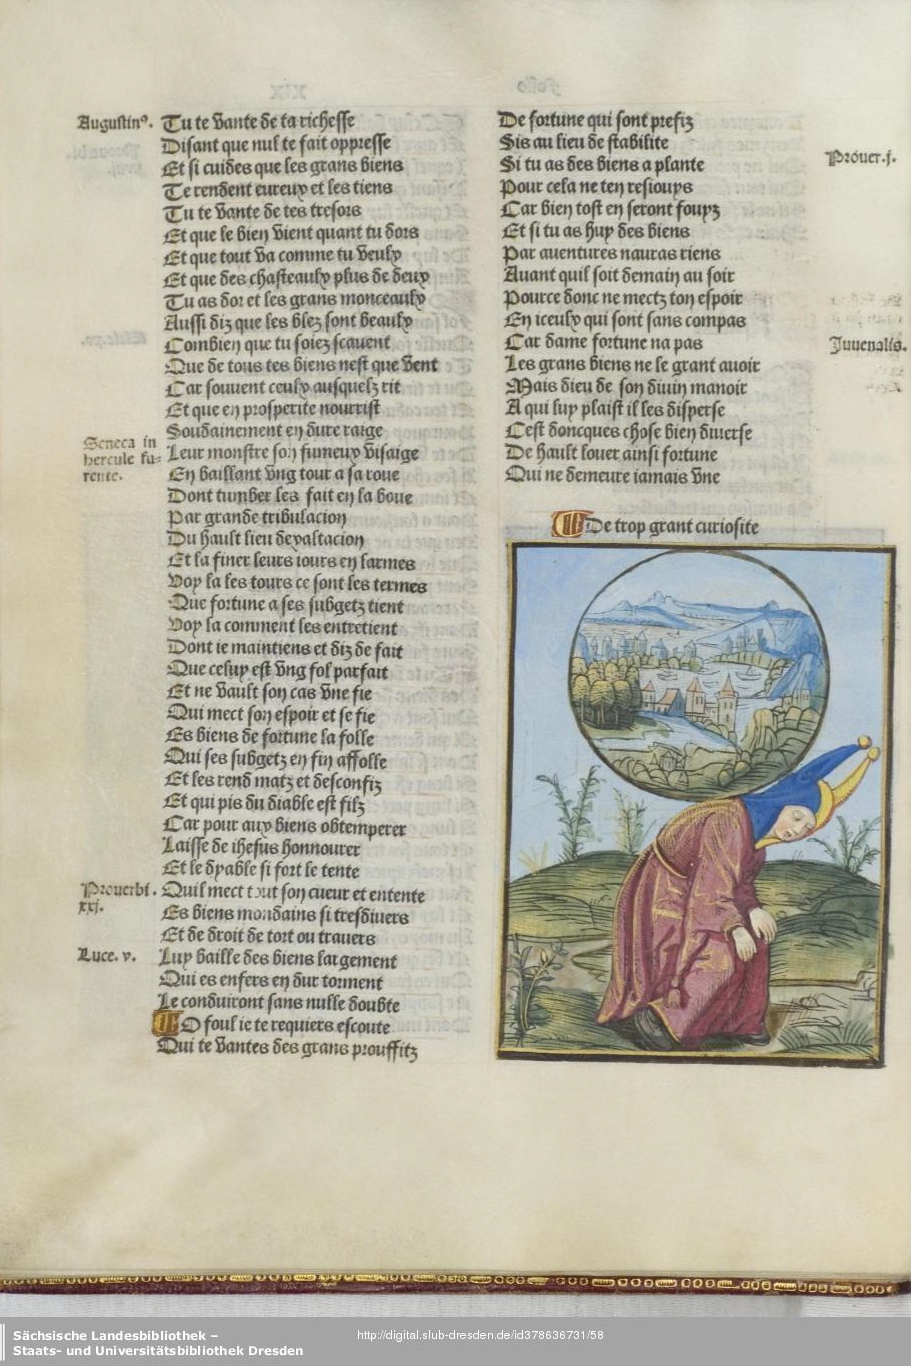 Augustinꝰ.
Tu te vante de ta richesse
Disant que nul te fait oppresse
Et si cuides que les grans biens
Te rendent eureux et les tiens
Tu te vante de tes tresors
Et que le bien vient quant tu dors
Et que tout va comme tu veulx
Et que des chasteaulx plus de deux
Tu as dor et les grans monceaulx
Aussi diz que les blez sont beaulx
Combien que tu soiez scauent
Que de tous tes biens nest que vent
Car souuent ceulx ausquelz rit
Et que en prosperite nourrist
Soudainement en dure raige
Seneca in
hercule fu-
rente.
Leur monstre son fumeux visaige
En baillant vng tour a sa roue
Dont tumber les fait en la boue
Par grande tribulacion
Du hault lieu dexaltacion
Et la finer leurs iours en larmes
Voy la les tours ce sont les termes
Que fortune a ses subgetz tient
Voy la comment les entretient
Dont ie maintiens et diz de fait
Que celuy est vng fol parfait
Et ne vault son cas vne fie
Qui mect son espoir et se fie
Es biens de fortune la folle
Qui ses subgetz en fin affolle
Et les rend matz et desconfiz
Et qui pis du diable est filz
Car pour aux biens obtemperer
Laisse de ihesus honnourer
Et le dyable si fort le tente
Prouerbi.
xxj.
Quil mect tout son cueur et entente
Es biens mondains si tresdiuers
Et de droit de tort ou trauers
Luce. v.
Luy baille des biens largement
Qui es enfers en dur torment
Le conduiront sans nulle doubte
O foul ie te requiers escoute
Qui te vantes des grans prouffitz
De fortune qui sont prefiz
Sis au lieu de stabilite
Si tu as des biens a plante
Prouer. j.
Pour cela ne ten resiouys
Car bien tost en seront fouyz
Et si tu as huy des biens
Par auentures nauras riens
Auant quil soit demain au soir
Pource donc ne mectz ton espoir
En iceulx qui sont sans compas
Car dame fortune na pas
Juuenalis.
Les grans biens ne le grant auoir
Mais dieu de son diuin manoir
A qui luy plaist il les disperse
Cest doncques chose bien diuerse
De hault louer ainsi fortune
Qui ne demeure iamais vne
De trop grant curiosite
Sächsische Landesbibliothek –
Staats- und Universitätsbibliothek Dresden
http://digital.slub-dresden.de/id378636731/58